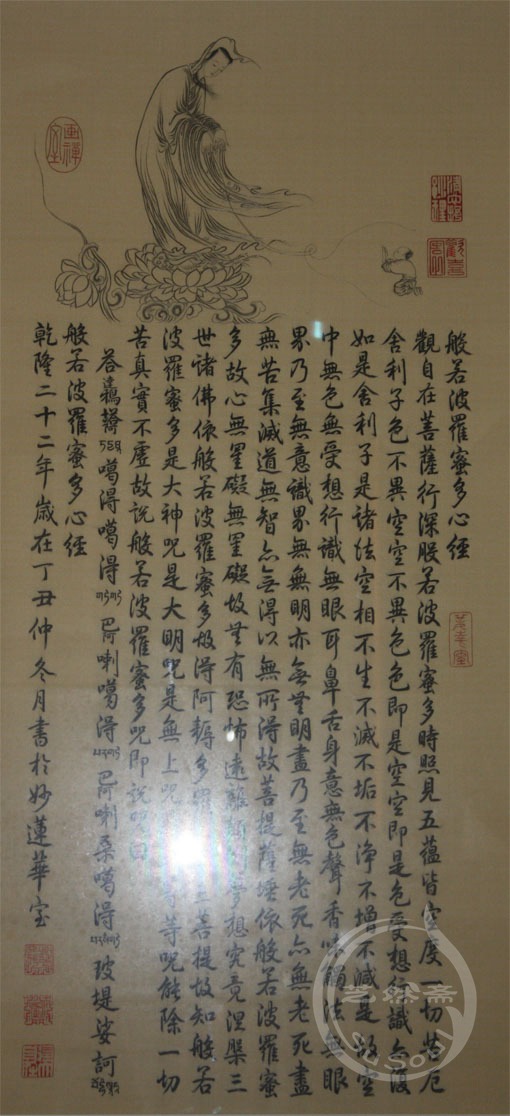 般若波羅蜜多心經
觀自在菩薩行深般若波羅蜜多時照見五蘊皆空度一切苦厄
舍利子色不異空空不異色色即是空空即是色受想行識亦復
如是舍利子是諸法空相不生不滅不垢不淨不增不減是故空
中無色無受想行識無眼耳鼻舌身意無色聲香味觸法無眼
界乃至無意識界無無明亦無無明盡乃至無老死亦無老死盡
無苦集滅道無智亦無得以無所得故菩提薩埵依般若波羅蜜
多故心無罣礙無罣礙故無有恐怖遠離顛倒夢想究竟涅槃三
世諸佛依般若波羅蜜多故得阿耨多羅三菩提故知般若
波羅蜜多是大神咒是大明咒是無上咒等等咒能除一切
苦真實不虛故說般若波羅蜜多咒即說咒曰
噶得噶得 巴阿喇噶得 巴阿喇桑噶得 玻堤娑訶
般若波羅蜜多心經
乾隆二十二年歲在丁丑仲冬月書於妙蓮華室
畫禪室